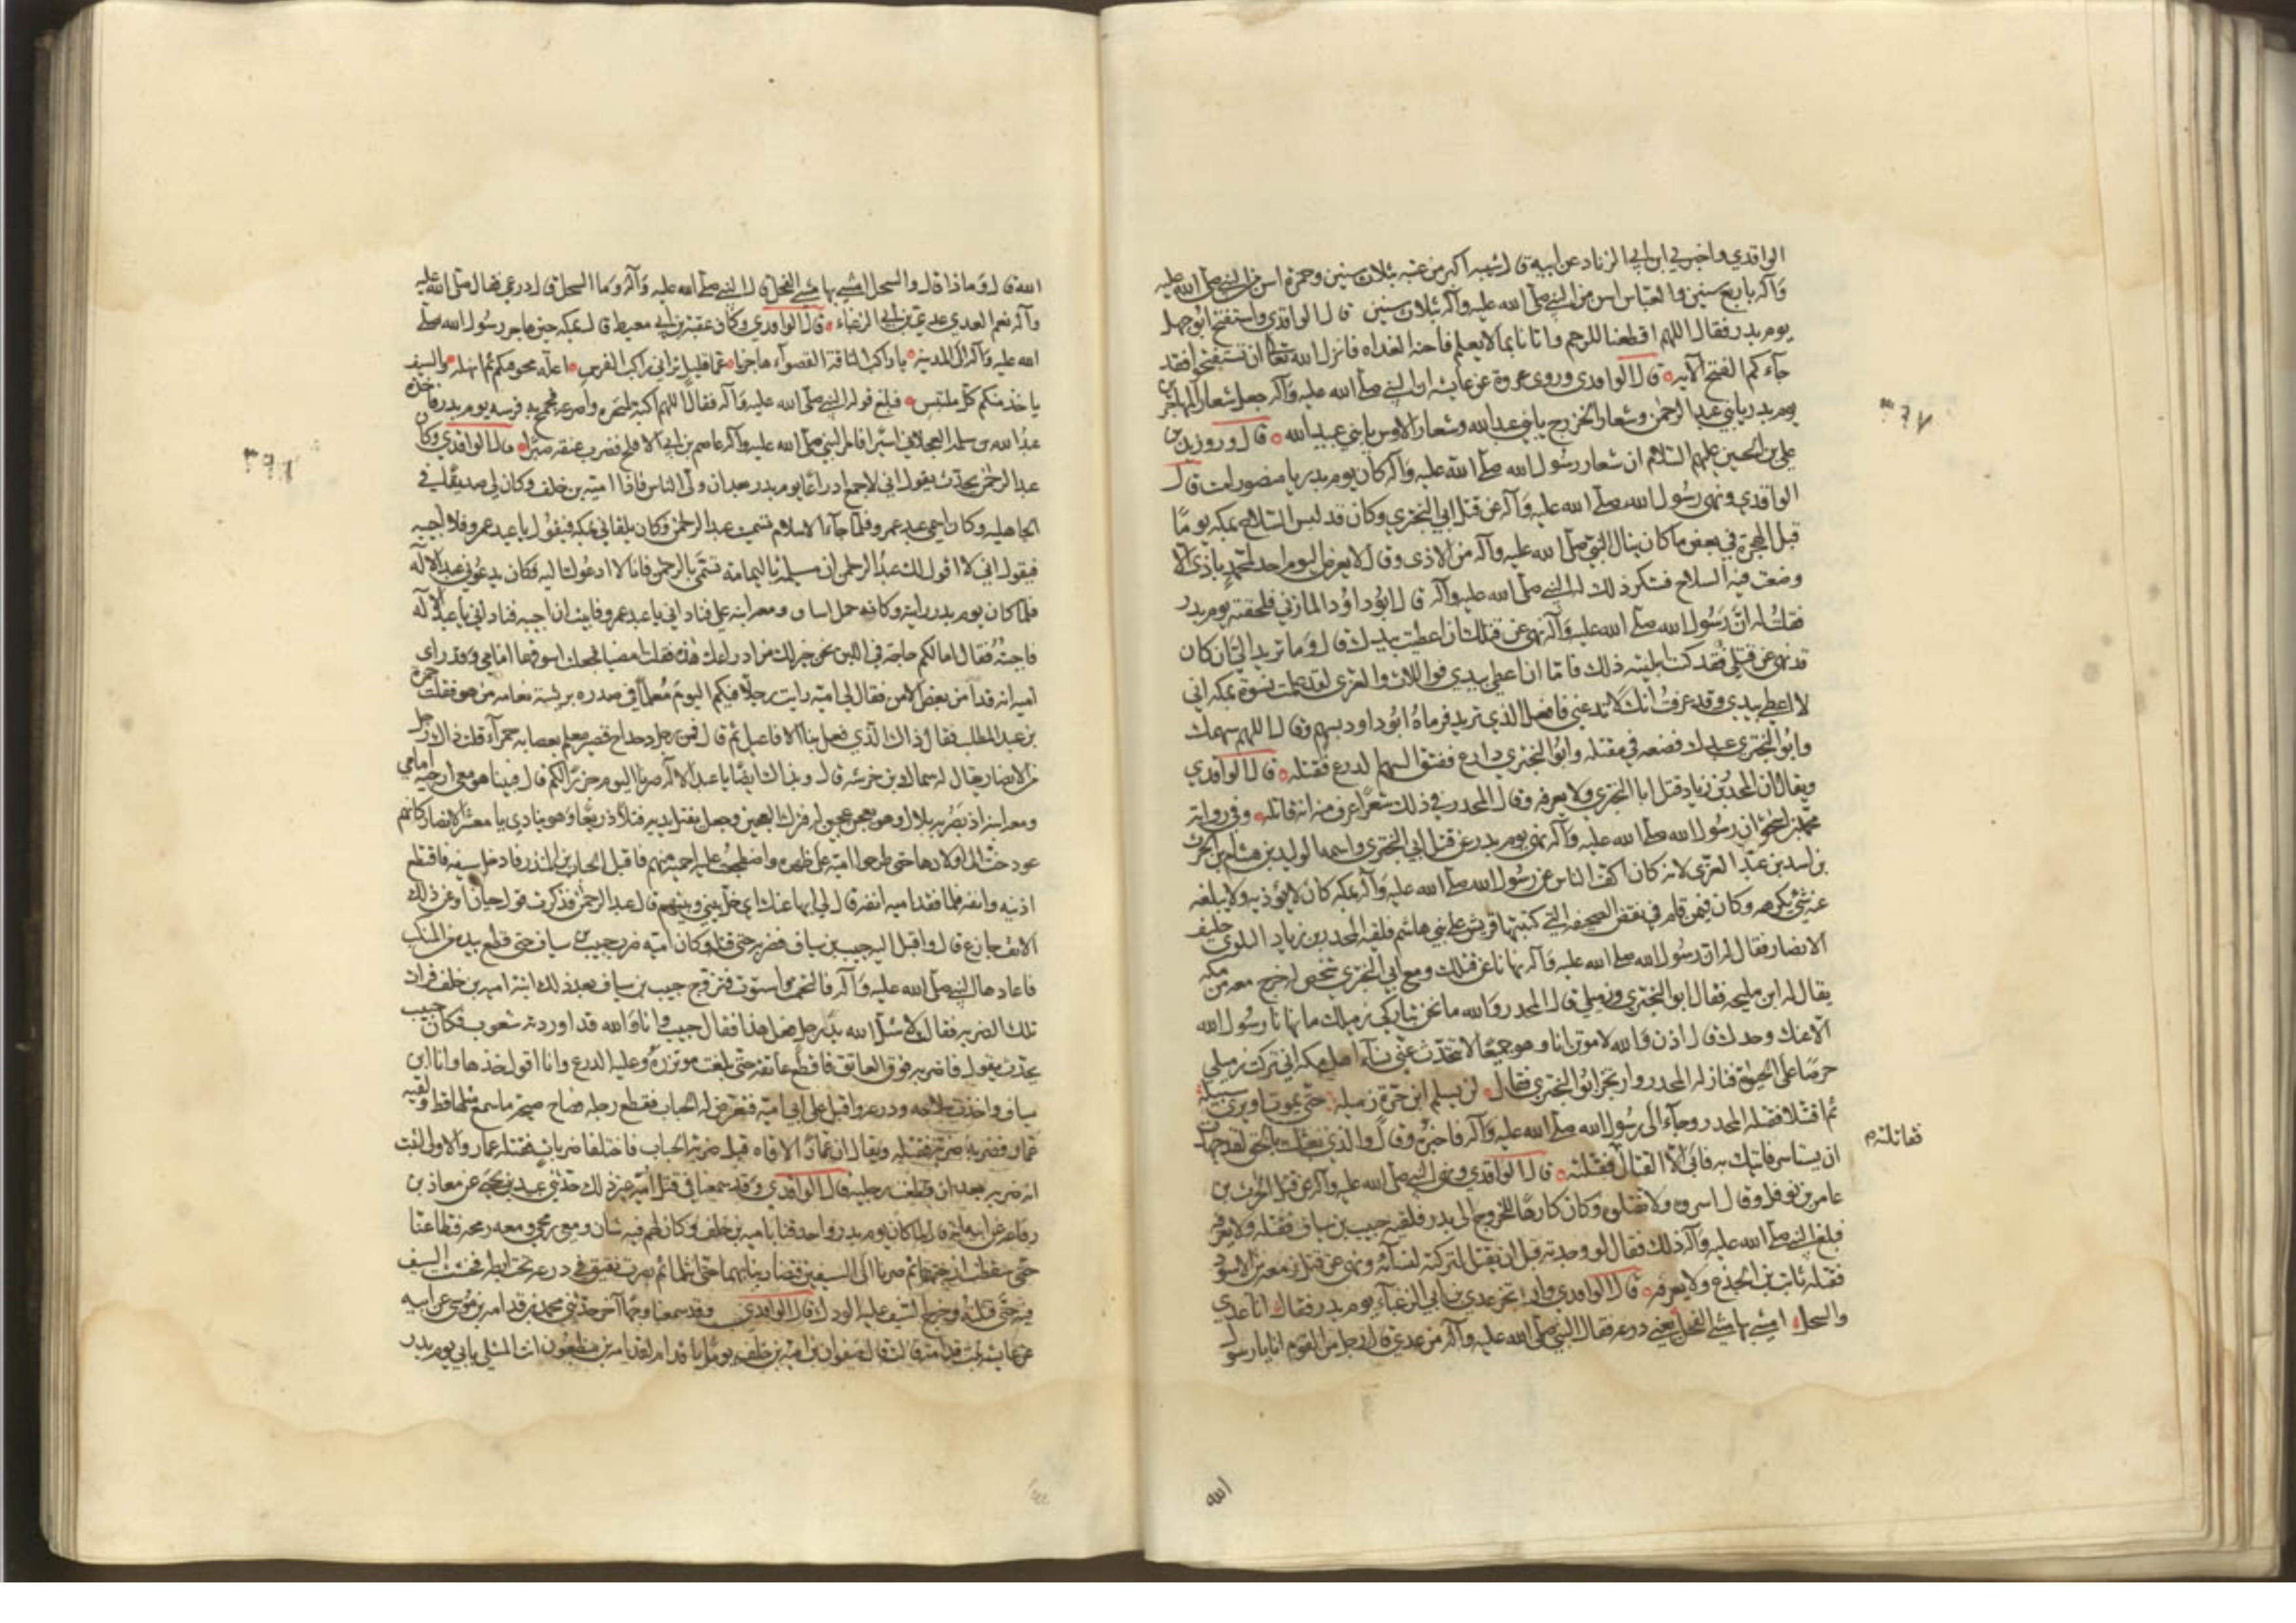 الواقدي واخبرني ابن ابي الزناد عن ابيه قال شيبه اكبر من عتبه بثلاث سنين وحمزة اسن من النبي صلى الله عليه
وآله باربع سنين والعباس اسن من النبي صلى الله عليه وآله بثلاث سنين قال الواقدي واستفتح ابو جهل
يوم بدر فقال اللهم اقطعنا للرحم واتانا بما لا يعلم فاحنه الغداه فانزل الله تعالى ان تستفتحوا فقد
جآءكم الفتح الآيه قال الواقدي وروى عروة عن عايشه ان النبي صلى الله عليه وآله جعل شعار المهاجرين
يوم بدر يا بني عبد الرحمن وشعار الخزرج يا بني عبد الله وشعار الاوس يا بني عبيد الله قال وروى زيد بن
علي بن الحسين عليهم السلام ان شعار رسول الله صلى الله عليه وآله كان يوم بدر يا منصور امت قال
الواقدي ونهى رسول الله صلى الله عليه وآله عن قتل ابي البختري وكان قد لبس السلاح بمكه يومًا
قبل الهجرة في بعض ما كان ينال النبي صلى الله عليه وآله من الاذى وقال لا يعرض اليوم احد لمحمد باذى الا
وضعت فيه السلاح فشكر ذلك له النبي صلى الله عليه وآله قال ابو داود المازني فلحقته يوم بدر
فقلت له ان رسول الله صلى الله عليه وآله نهى عن قتلك ان اعطيت بيدك قال وما تريد الي ان كان
قد نهى عن قتلي فقد كنت ابليته ذلك فاما ان اعطي بيدي فواللات والعزى لقد علمت نسوة بمكه اني
لا اعطي بيدي وقد عرفت انك لا تدعني فافعل الذي تريد فرماه ابو داود بسهم وقال اللهم سهمك
وابو البختري عبدك فضعه في مقتله وابو البختري دارع ففتق السهم الدرع فقتله قال الواقدي
ويقال ان المجذر بن زياد قتل ابا البختري ولا يعرفه وقال المجذر في ذلك شعرًا عرف منه انه قاتله وفي رواية
محمد بن اسحق ان رسول الله صلى الله عليه وآله نهى يوم بدر عن قتل ابي البختري واسمه الوليد بن هشام بن الحرث
بن اسد بن عبد العزى لانه كان اكف الناس عن رسول الله صلى الله عليه وآله بمكه كان لا يؤذيه ولا يبلغه
عنه شئ يكرهه وكان فيمن قام في نقض الصحيفه التي كتبتها قريش على بني هاشم فلقيه المجذر بن زياد البلوي حليف
الانصار فقال له ان رسول الله صلى الله عليه وآله نهانا عن قتلك ومع ابي البختري شخص خرج معه من مكه
يقال له ابن مليحه فقال ابو البختري وزميلي قال المجذر والله ما نحن بتاركي زميلك ما نهانا رسول الله
الا عنك وحدك قال اذن والله لاموتن انا وهو جميعًا لا تتحدث عني نسآء اهل مكه اني تركت زميلي
حرصًا على الحيوة فنازله المجذر وارتجز ابو البختري فقال لن يسلم ابن حرة زميله حتى يموت او يرى سبيله
ثم اقتتلا فقتله المجذر وجآء الى رسول الله صلى الله عليه وآله فاخبره وقال والذي بعثك بالحق لقد جهدت
ان يستاسر فاتيك به فابى الا القتال فقتلته قال الواقدي ونهى النبي صلى الله عليه وآله عن قتل الحرث بن
فقاتلته م
عامر بن نوفل وقال اسروه ولا تقتلوه وكان كارهًا للخروج الى بدر فلقيه حبيب بن يساف فقتله ولا يعرفه
فبلغ النبي صلى الله عليه وآله ذلك فقال لو وجدته قبل ان يقتل لتركته لنسآئه ونهى عن قتل زمعه بن الاسود
فقتله ثابت بن الجذع ولا يعرفه قال الواقدي وارتجز عدي بن ابي الزغبآء يوم بدر فقال انا عدي
والسحل امشي بها مشي الفحل يعني درعه فقال النبي صلى الله عليه وآله من عدي قال رجل من القوم انا يا رسول
الله
٣٦٧
الله قال وماذا قال والسحل امشي بها مشي الفحل قال النبي صلى الله عليه وآله وما السحل قال درعي فقال صلى الله عليه
وآله نعم العدي عدي بن ابي الزغباء قال الواقدي وكان عقبه بن ابي معيط قال بمكه حين هاجر رسول الله صلى
الله عليه وآله الى المدينه يا راكب الناقة القصوآء هاجرنا عما قليل تراني راكب الفرس اعل رمحي فيكم ثم انهله والسيف
ياخذ منكم كل ملتبس فبلغ قوله النبي صلى الله عليه وآله فقال اللهم اكبه لمنخره واصرعه فجمح به فرسه يوم بدر فاخذه
عبد الله بن سلمه العجلاني اسيرا فامر النبي صلى الله عليه وآله عاصم بن ابي الافلح فضرب عنقه صبرًا قال الواقدي وكان
عبد الرحمن يحدث يقول اني لاجمع ادراعًا يوم بدر بعد ان ولى الناس فاذا اميه بن خلف وكان لي صديقًا في
الجاهليه وكان اسمي عبد عمرو فلما جآءنا الاسلام تسميت عبد الرحمن وكان يلقاني بمكه فيقول يا عبد عمرو فلا اجيبه
فيقول اني لا اقول لك عبد الرحمن ان مسيلمه باليمامة تسمى بالرحمن فانا لا ادعوك اليه فكان يدعوني عبد الاله
فلما كان يوم بدر رايته وكانه جمل يساق ومعه ابنه علي فناداني يا عبد عمرو فابيت ان اجيبه فناداني يا عبد الاله
فاجبته فقال اما لكم حاجة في اللبن نحن خير لك من ادراعك هذه فقلت امضيا فجعلت اسوقهما امامي وقد راى
اميه انه قد امن بعض الامن فقال لي اميه رايت رجلًا فيكم اليوم معلمًا في صدره بريشة نعامه من هو فقلت حمزه
بن عبد المطلب فقال ذاك الذي فعل بنا الافاعيل ثم قال فمن رجل دحداح قصير معلم بعصابه حمرآء قلت ذاك رجل
من الانصار يقال له سماك بن خرشه قال وبذاك ايضًا يا عبد الاله صرنا اليوم جزرًا لكم قال فبينا هو معي ازجيه امامي
ومعه ابنه اذ بصر به بلال وهو يعجن عجين له فترك العجين وجعل يفتل يديه فتلًا ذريعًا وهو ينادي يا معشر الانصار كانهم
عوذ حنت الى اولادها حتى طرحوا اميه على ظهره واضطجعت عليه احميه منهم فاقبل الحباب بن المنذر فادخل سيفه فاقتطع
ارنبه وانفه فلما فقد اميه انفه قال لي ايها عنك اي خل بيني وبينهم قال عبد الرحمن فذكرت قول حسان او عن ذلك
الانف جازع قال واقبل اليه حبيب بن يساف فضربه حتى قتله وكان اميه ضرب حبيب بن يساف حتى قطع يده من المنكب
فاعادها النبي صلى الله عليه وآله فالتحمت واستوت فتزوج حبيب بن يساف بعد ذلك ابنة اميه بن خلف فرات
تلك الضربه فقالت لا يشل الله يد رجل فعل هذا فقال حبيب وانا والله قد اوردته شعوب فكان حبيب
يحدث يقول فاضربه فوق العاتق فاقطع عاتقه حتى بلغت مؤتزره وعليه الدرع وانا اقول خذها وانا ابن
يساف واخذت سلاحه ودرعه واقبل علي بن اميه فتعرض له الحباب فقطع رجله فصاح صيحة ما سمع مثلها قط ولقيه
عمار فضربه ضربة فقتله ويقال ان عمارًا لاقاه قبل ضربة الحباب فاختلفا ضربات فقتله عمار والاولى اثبت
انه ضربه بعد ان قطعت رجليه قال الواقدي وقد سمعنا في قتل اميه غير ذلك حدثني عبيد بن يحيى عن معاذ بن
رفاعه عن ابيه قال لما كان يوم بدر واحدقنا باميه بن خلف وكان لهم فيه شان ومعي رمحي ومعه رمحه فتطاعنا
حتى سقطت ازجتهما ثم صرنا الى السيفين فتضاربنا بهما حتى انثلما ثم بصرت بفتق في درعه تحت ابطه فخششت السيف
فيه حتى قتلته وخرج السيف عليه الودك قال الواقدي وقد سمعنا وجهًا آخر حدثني محمد بن قدامه بن موسى عن ابيه
عن عايشه بنت قدامه قالت قال صفوان بن اميه بن خلف يومًا يا قدام لقدامه بن مظعون انت المشلي بابي يوم بدر